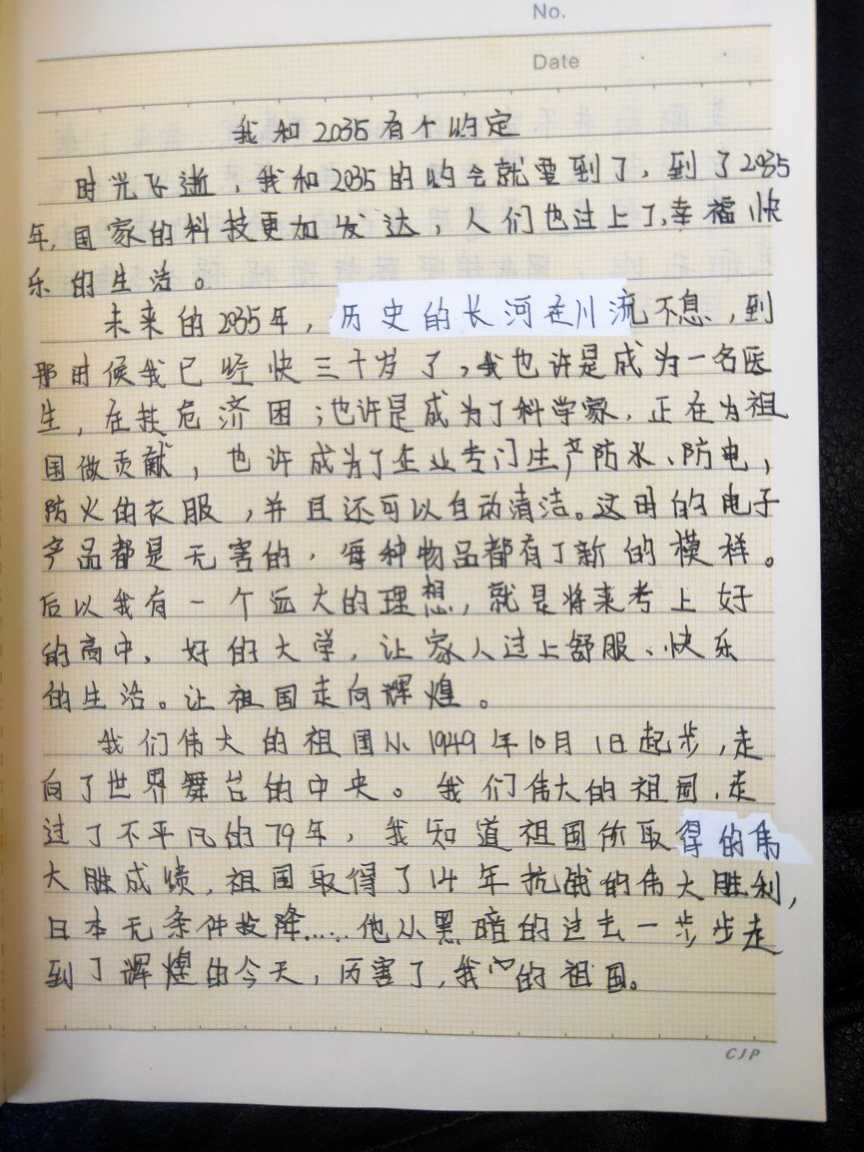 No.
Date
我和2035有个约定
时光飞逝,我和2035的约会就要到了,到了2035
年,国家的科技更加发达,人们也过上了,幸福快
乐的生活。
未来的2035年,历史的长河走川流不息,到
那时候我已经快三十岁了,我也许是成为一名医
生,在扶危济困;也许是成为了科学家,正在为祖
国做贡献,也许成为了企业专门生产防水、防电,
防火的衣服,并且还可以自动清洁。这时的电子
产品都是无害的,每种物品都有了新的模样。
后以我有一个远大的理想,就是将来考上好
的高中,好的大学,让家人过上舒服、快乐
的生活。让祖国走向辉煌。
我们伟大的祖国从1949年10月1日起步,走
向了世界舞台的中央。我们伟大的祖国,走
过了不平凡的79年,我知道祖国所取得的伟
大胜成绩,祖国取得了14年抗战的伟大胜利,
日本无条件投降.....他从黑暗的过去一步步走
到了辉煌的今天,厉害了,我心的祖国。
CJP